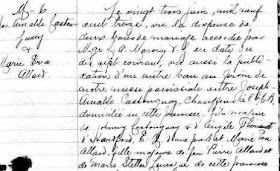 M-6
Jos. Amable Caston-
guay
&
Marie Eva
Allard
Le vingt trois juin, mil neuf
cent treize, vu la dispense de
deux bans de mariage accordée par
Mgr L. A. en date du
dix sept courant, vu aussi la publi-
cation d'un autre ban au prône de
notre messe paroissiale entre Joseph
Amable Castonguay, Chauffeur
domicilié en cette paroisse, fils majeur
de Castonguay & d'Angèle
d'Hartford, E. U. d'une part et Marie Eva
Allard, fille majeure de Jean Pierre Allard et
de Marie Stella de cette paroisse